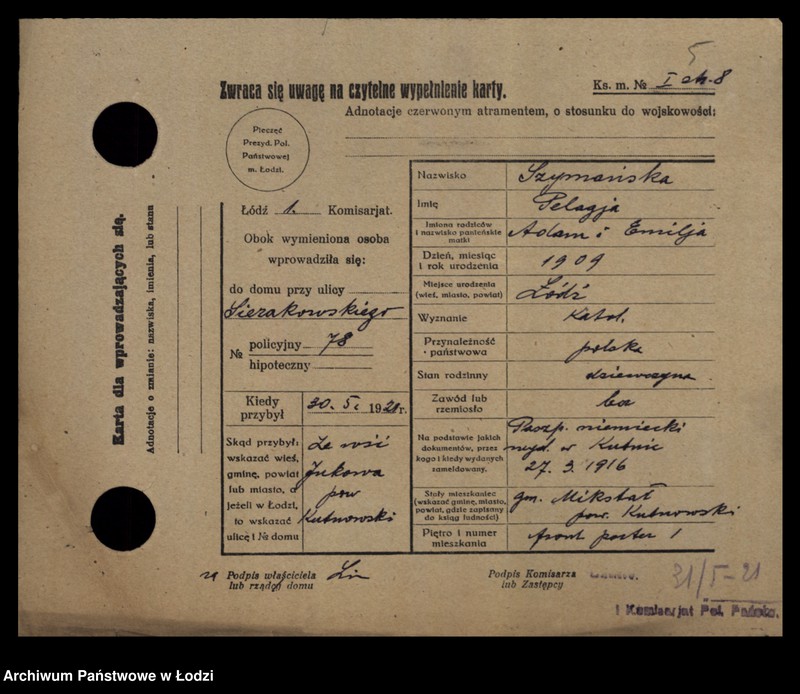 5
Zwraca się uwagę na czytelne wypełnienie karty.
Ks. m. № I
Adnotacje czerwonym atramentem, o stosunku do wojskowości:
Pieczęć
Prezyd. Pol.
Państwowej
m. Łodzi.
Karta dla wprowadzających się.
Adnotacje o zmianie: nazwiska, imienia, lub stanu
Łódź 1. Komisarjat.
Obok wymieniona osoba
wprowadziła się:
do domu przy ulicy
Sierakowskiego
№ policyjny 78
hipoteczny
Kiedy przybył 30. 5. 1921 r.
Skąd przybył: Ze wsi
wskazać wieś,
gminę, powiat Jukowa
lub miasto, a pow
jeżeli w Łodzi,
to wskazać Kutnowski
ulicę i № domu
Nazwisko Szymańska
Imię Pelagja
Imiona rodziców i nazwisko panieńskie matki Adam i Emilja
Dzień, miesiąc i rok urodzenia 1909
Miejsce urodzenia (wieś, miasto, powiat) Łódź
Wyznanie Katol.
Przynależność państwowa polska
Stan rodzinny dziewczyna
Zawód lub rzemiosło bez
Na podstawie jakich Paszp. niemiecki
dokumentów, przez wyd. w Kutnie
kogo i kiedy wydanych 27. 3. 1916
zameldowany.
Stały mieszkaniec gm. Mikstał
(wskazać gminę, miasto,
powiat, gdzie zapisany pow. Kutnowski
do ksiąg ludności)
Piętro i numer mieszkania front parter 1
Podpis właściciela
lub rządcy domu
Podpis Komisarza
lub Zastępcy
31/5-21
I Komisarjat Pol. Państw.
Archiwum Państwowe w Łodzi